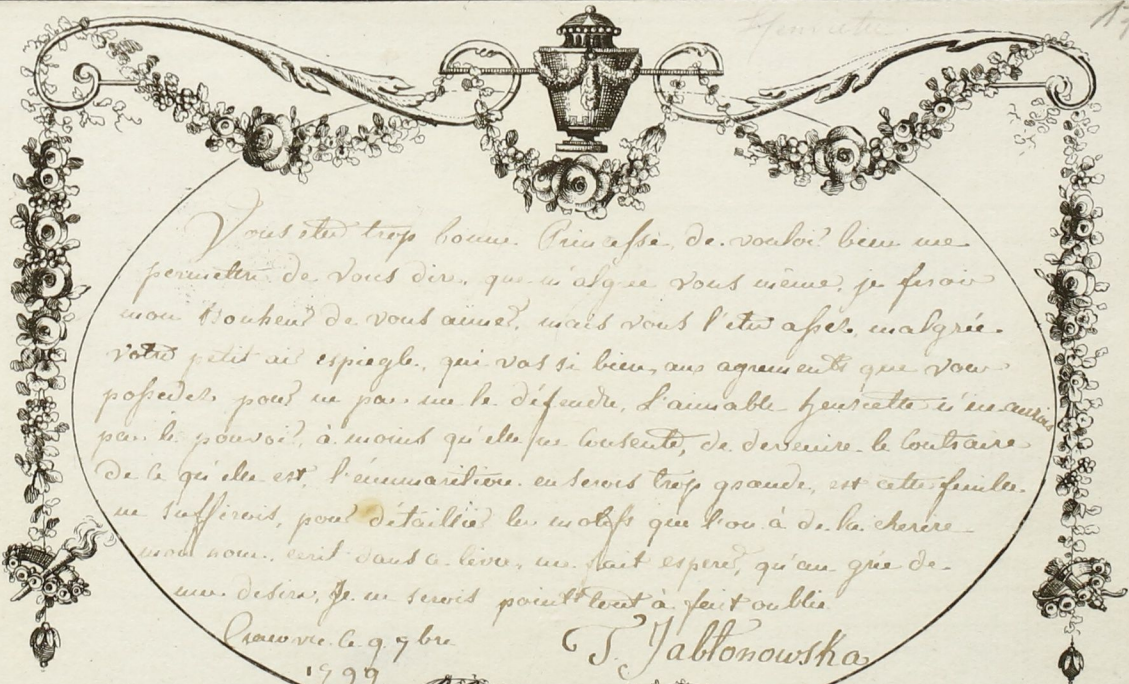 Henriette
Vous etes trop bonne Princesse, de vouloir bien me
permettre de vous dire, que malgre vous même, je ferois
mon bonheur de vous aimer, mais vous l'etes assez, malgrée
votre petit air espiegle, qui vas si bien, aux agrements que vous
possedez pour ne pas me le défendre, L'aimable Henriette n'en auroit
pas le pouvoir, à moins qu'elle ne Consente, de devenire le Contraire
de ce qu'elle est, l'énumaration en serois trop grande, est cette feuille
ne sufferois, pour détaillér les motifs que l'on à de la cherire
mon nom ecrit dans ce livre, me fait esperer, qu'au grée de
mes desirs, Je ne serois point tout à fait oublié
Cracovie le 9 9bre T. Jabłonowska
1799